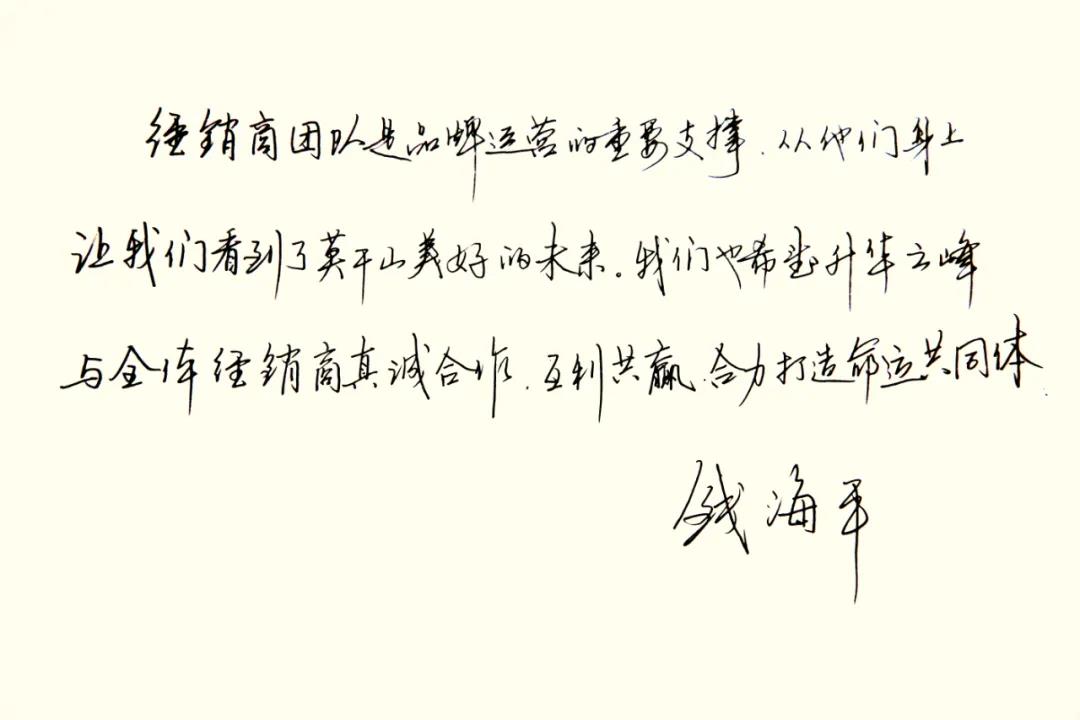 经销商团队是品牌运营的重要支撑.从他们身上
让我们看到了莫干山美好的未来。我们也希望升华云峰
与全体经销商真诚合作.互利共赢.合力打造命运共同体.
钱海平